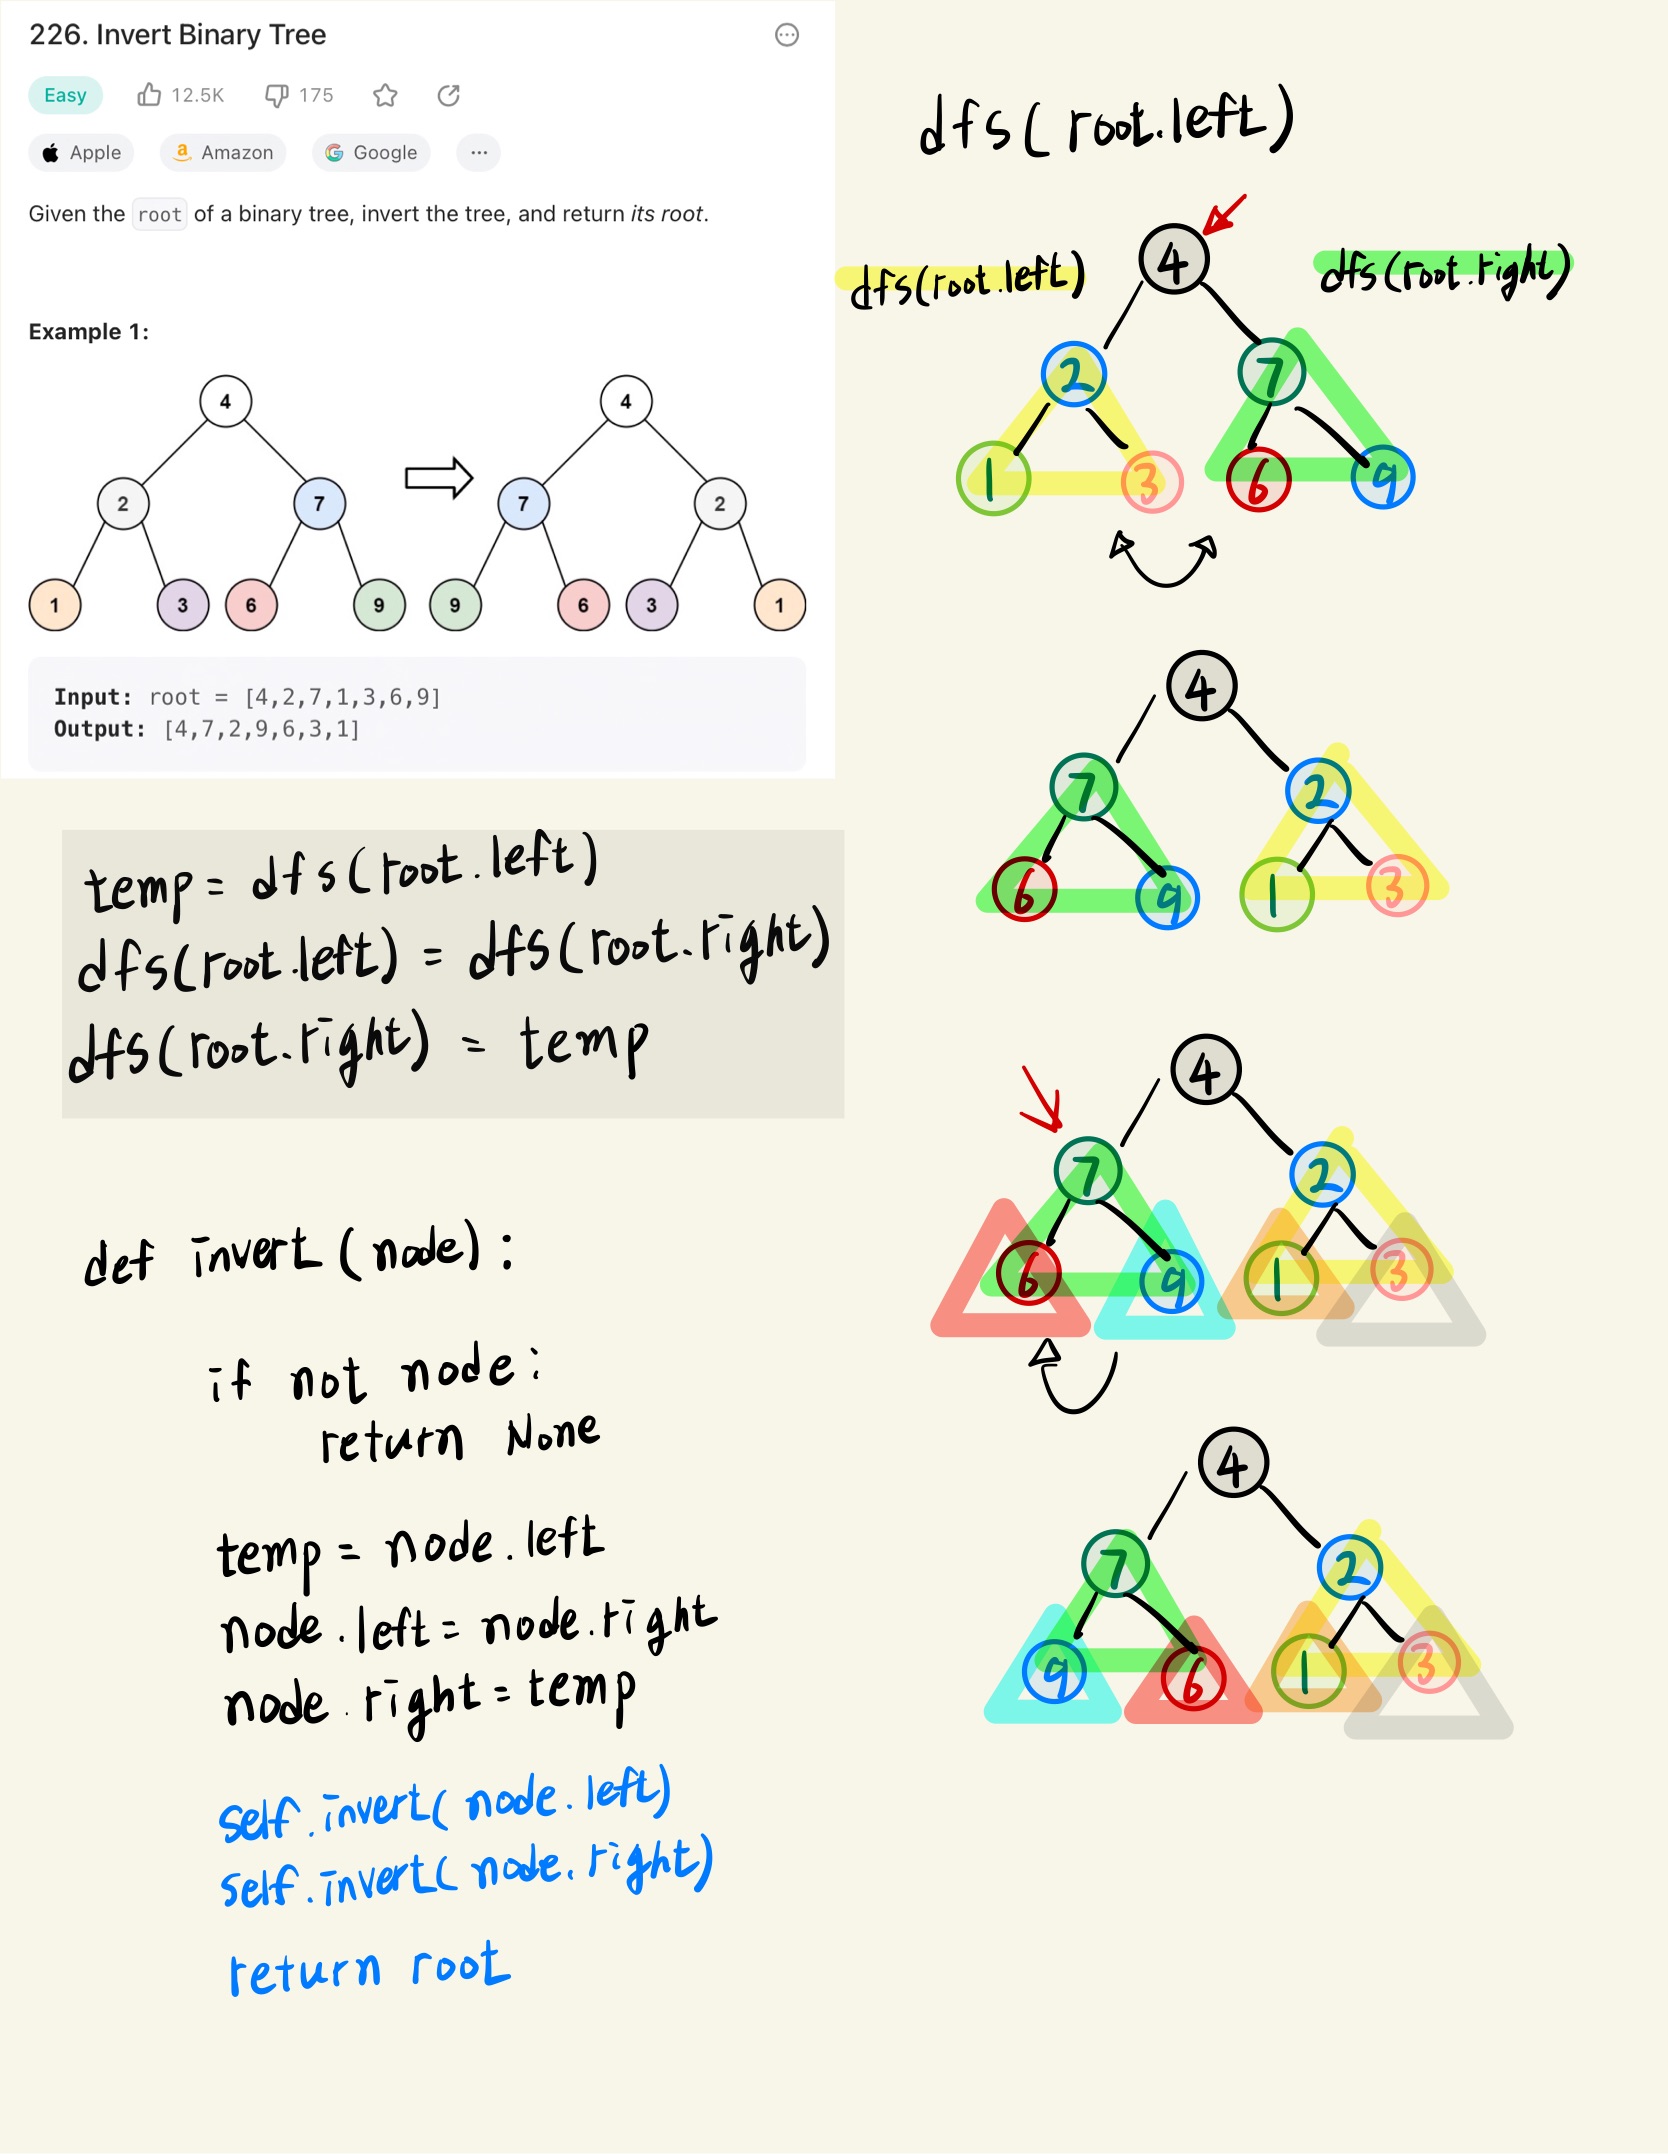 226. Invert Binary Tree
Easy 12.5K 175
Apple Amazon Google ...
Given the root of a binary tree, invert the tree, and return its root.
Example 1:
4 4
2 7 7 2
1 3 6 9 9 6 3 1
Input: root = [4,2,7,1,3,6,9]
Output: [4,7,2,9,6,3,1]
temp = dfs(root.left)
dfs(root.left) = dfs(root.right)
dfs(root.right) = temp
def invert (node):
if not node:
return None
temp = node.left
node.left = node.right
node.right = temp
self.invert(node.left)
self.invert(node.right)
return root
dfs(root.left)
4
dfs(root.left) dfs(root.right)
2 7
1 3 6 9
4
7 2
6 9 1 3
4
7 2
6 9 1 3
4
7 2
9 6 1 3